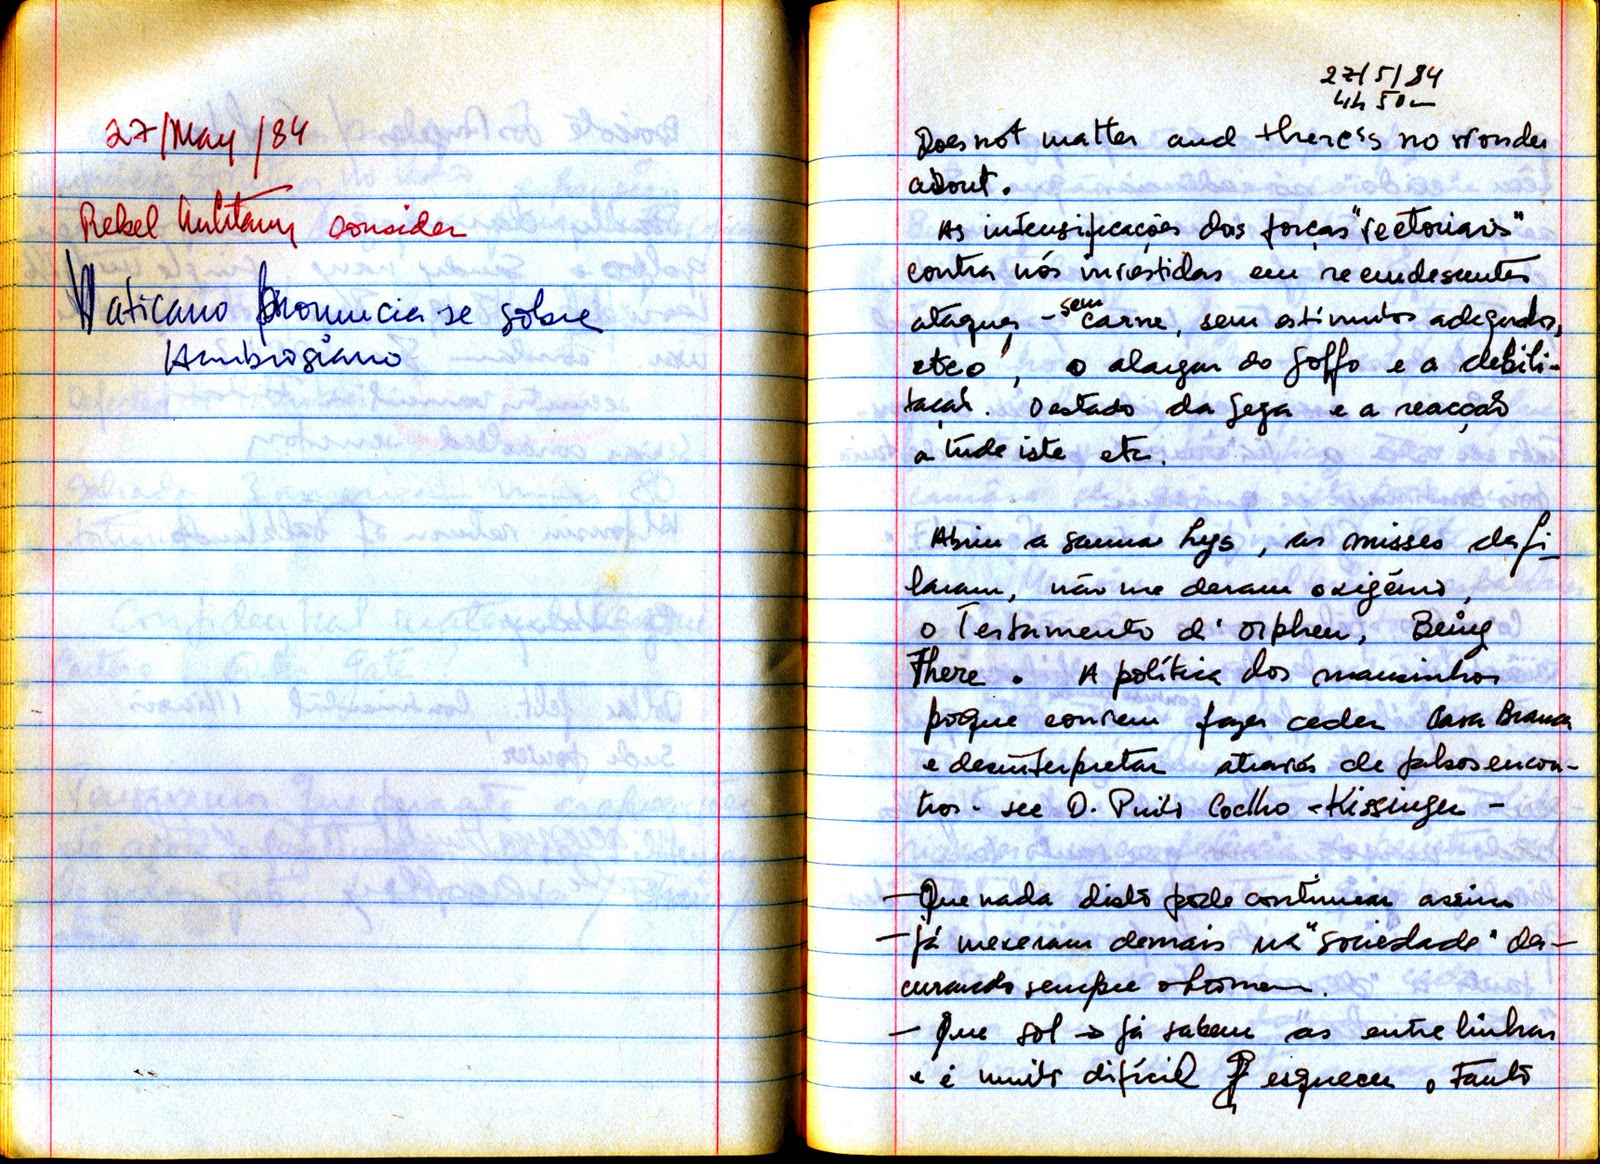 27/May/84
Rebel Military consider
Vaticano pronuncia se sobre
Ambrogiano
27/5/84
4h 50m
Does not matter and there is no wonder
about.
As intensificações das forças "sectoriais"
contra nós investidas em
ataques - sem carne, sem estimulos adequados,
etc , o alargar do golfo e a debili-
tação. O estado da Gega e a reacção
a tude iste etc.
Abriu a Lys, as misses desfi
laram, não me deram oxigénio,
o Testamento d'Orpheu, Being
There. A política dos mansinhos
poque convem fazer ceder Casa Branca
e desinterpretar através de falsos encon-
tros - see D. Pinto Coelho - Kissinger -
- Que nada disto pode continuar assim
- já mexeram demais na "sociedade" des-
curando sempre o homem.
- Que sol já sabem as entrelinhas
e é muito difícil esquecer, Tanto